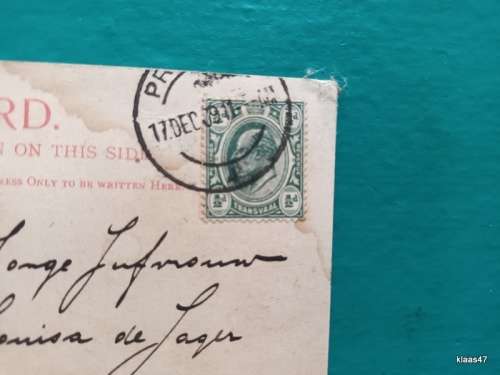 PR
17 DEC 09
RD.
N ON THIS SIDE
RESS ONLY TO BE WRITTEN HERE
½d ½d
TRANSVAAL
Jonge Jufvrouw
Louisa de Jager
klaas47